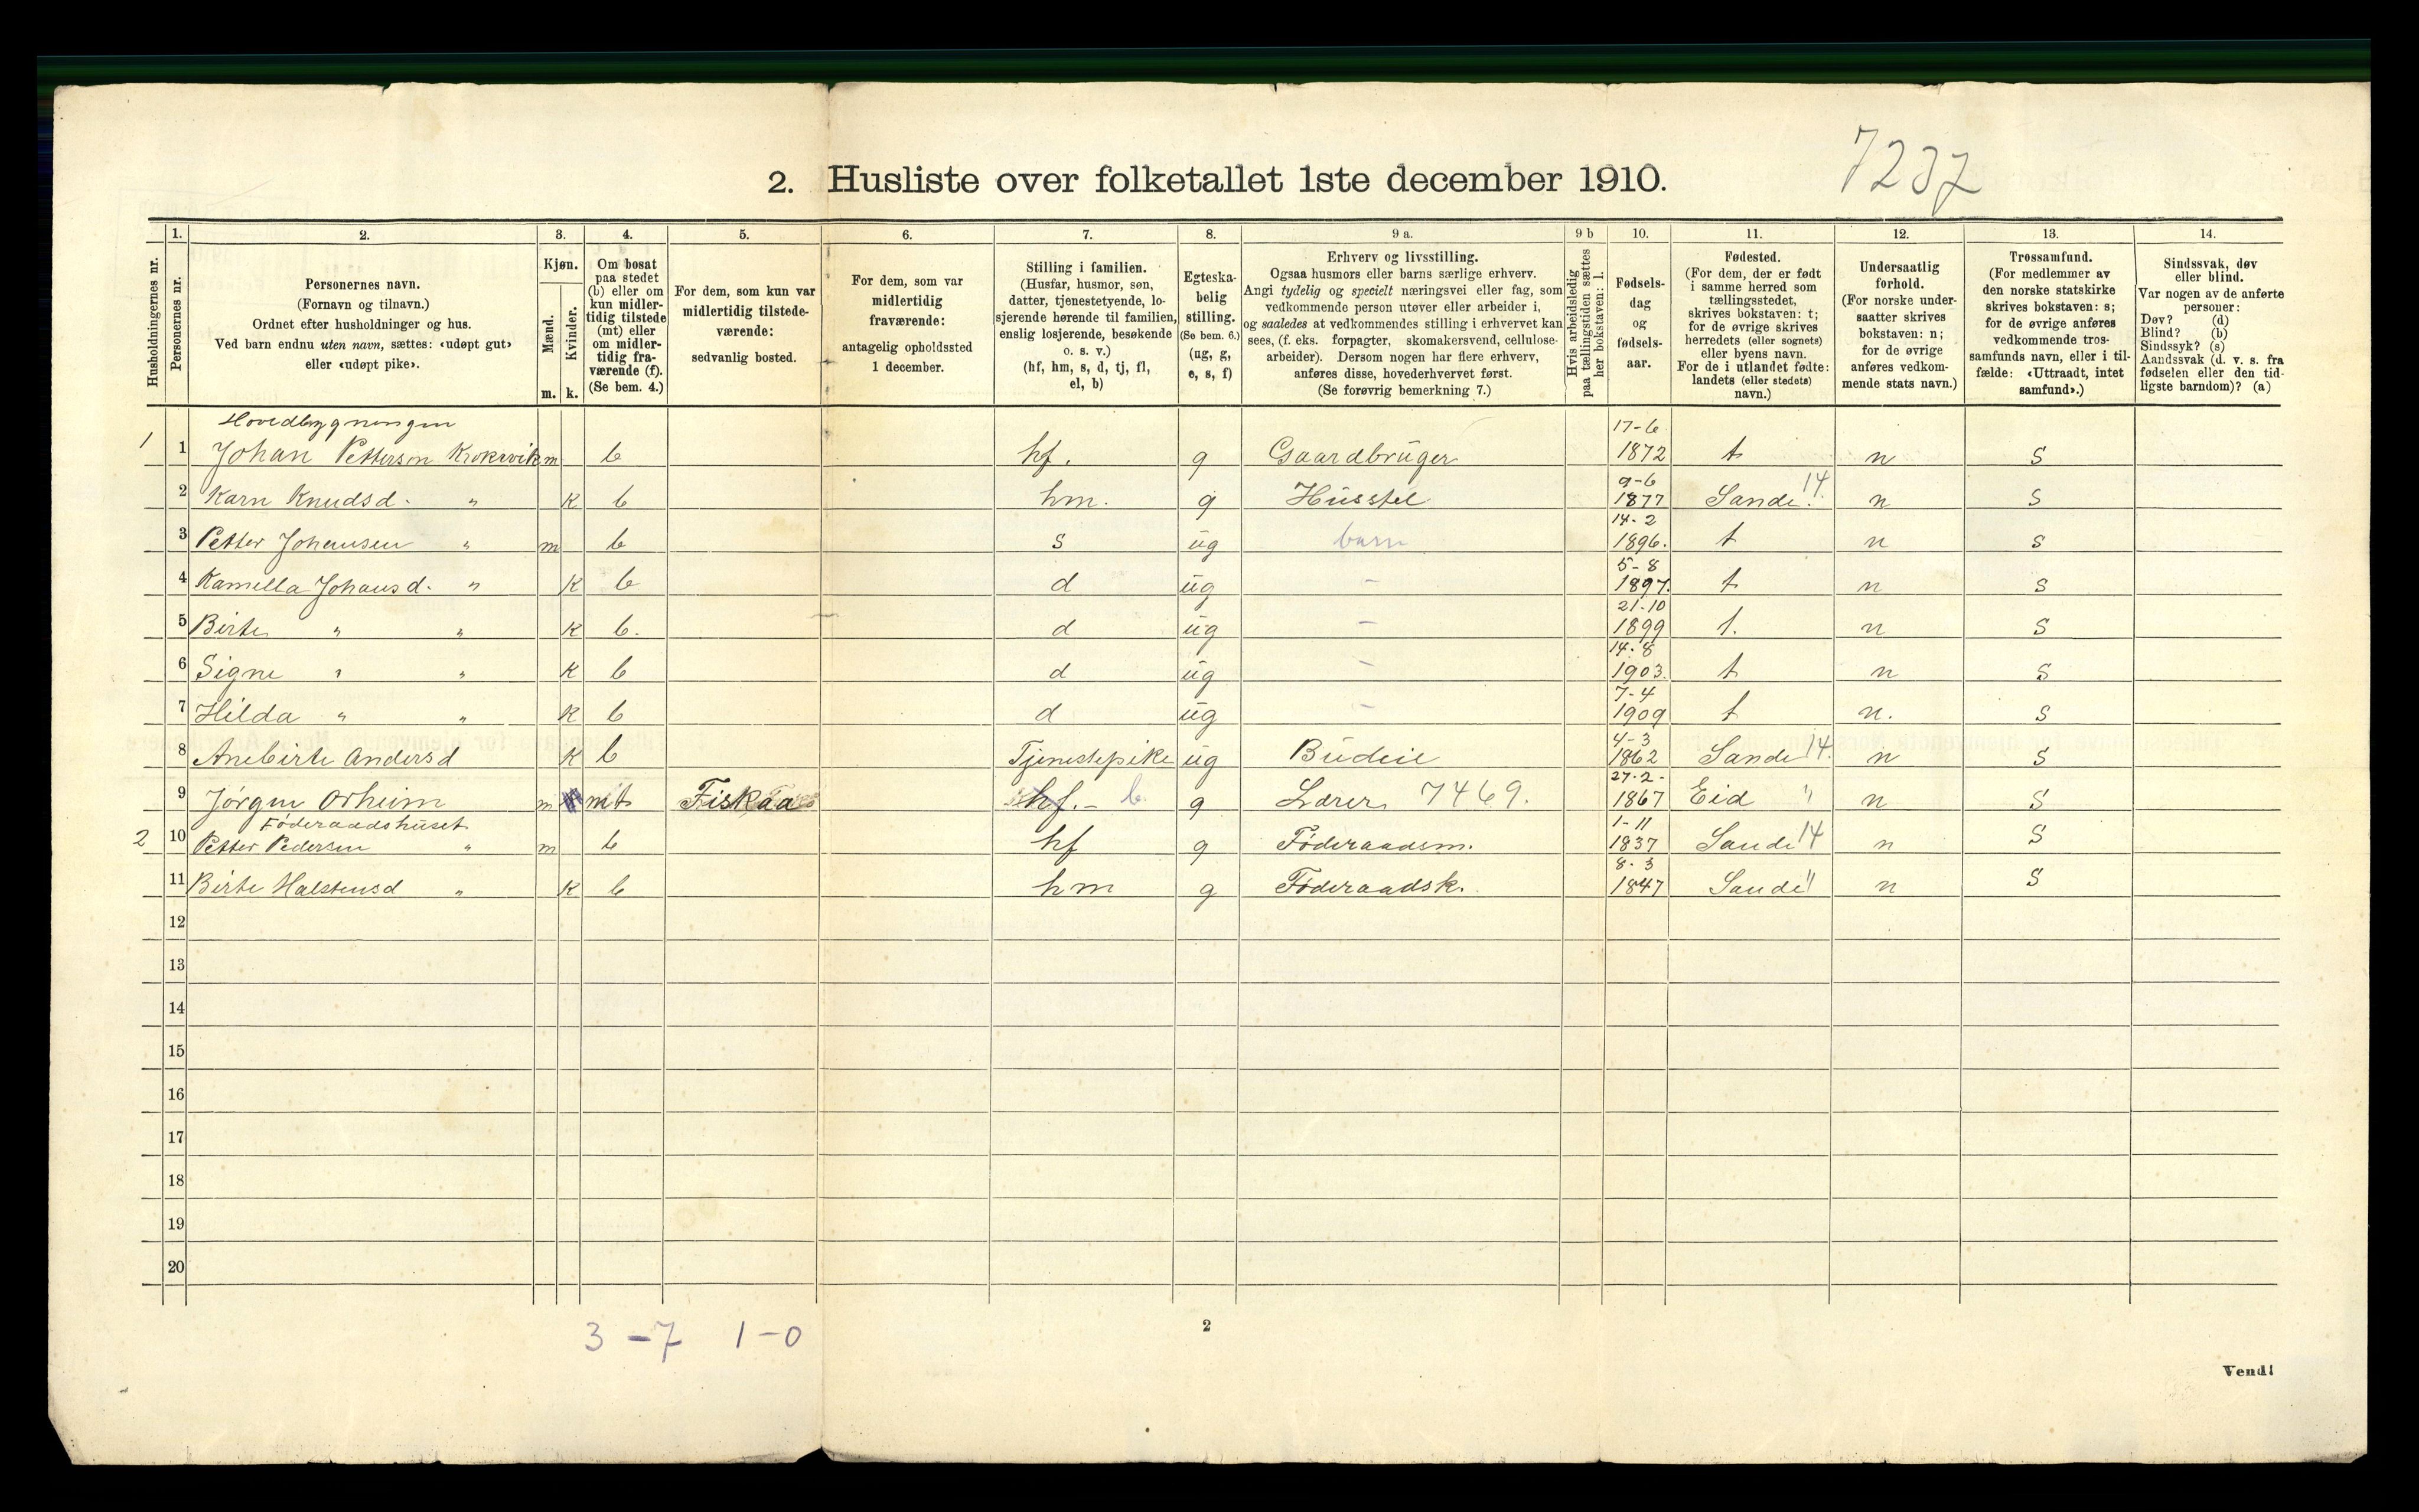 2. Husliste over folketallet 1ste december 1910.
7237
Husholdningernes nr.
1.
Personernes nr.
2.
Personernes navn.
(Fornavn og tilnavn.)
Ordnet efter husholdninger og hus.
Ved barn endnu uten navn, sættes: «udøpt gut»
eller «udøpt pike».
3.
Kjøn.
Mænd.
m.
Kvinder.
k.
4.
Om bosat
paa stedet
(b) eller om
kun midler-
tidig tilstede
(mt) eller
om midler-
tidig fra-
værende (f).
(Se bem. 4.)
5.
For dem, som kun var
midlertidig tilstede-
værende:
sedvanlig bosted.
6.
For dem, som var
midlertidig
fraværende:
antagelig opholdssted
1 december.
7.
Stilling i familien.
(Husfar, husmor, søn,
datter, tjenestetyende, lo-
sjerende hørende til familien,
enslig losjerende, besøkende
o. s. v.)
(hf, hm, s, d, tj, fl,
el, b)
8.
Egteska-
belig
stilling.
(Se bem. 6.)
(ug, g,
e, s, f)
9 a.
Erhverv og livsstilling.
Ogsaa husmors eller barns særlige erhverv.
Angi tydelig og specielt næringsvei eller fag, som
vedkommende person utøver eller arbeider i,
og saaledes at vedkommendes stilling i erhvervet kan
sees, (f. eks. forpagter, skomakersvend, cellulose-
arbeider). Dersom nogen har flere erhverv,
anføres disse, hovederhvervet først.
(Se forøvrig bemerkning 7.)
9 b
Hvis arbeidsledig
paa tællingstiden sættes
her bokstaven: l.
10.
Fødsels-
dag
og
fødsels-
aar.
11.
Fødested.
(For dem, der er født
i samme herred som
tællingsstedet,
skrives bokstaven: t;
for de øvrige skrives
herredets (eller sognets)
eller byens navn.
For de i utlandet fødte:
landets (eller stedets)
navn.)
12.
Undersaatlig
forhold.
(For norske under-
saatter skrives
bokstaven: n;
for de øvrige
anføres vedkom-
mende stats navn.)
13.
Trossamfund.
(For medlemmer av
den norske statskirke
skrives bokstaven: s;
for de øvrige anføres
vedkommende tros-
samfunds navn, eller i til-
fælde: «Uttraadt, intet
samfund».)
14.
Sindssvak, døv
eller blind.
Var nogen av de anførte
personer:
Døv? (d)
Blind? (b)
Sindssyk? (s)
Aandssvak (d. v. s. fra
fødselen eller den tid-
ligste barndom)? (a)
Hovedbygningen
1 1 Johan Petterson Krokvik m b hf. g Gaardbruger 17-6 1872 t n s
2 Karn Knudsd. " k b hm. g Husstel 9-6 1877 Sande 14. n s
3 Petter Johansen " m b s ug barn 14-2 1896. t n s
4 Kamella Johansd. " k b d ug - 5-8 1897. t n s
5 Birte " " k b. d ug - 21-10 1899 t. n s
6 Signe " " k b d ug - 14-8 1903. t n s
7 Hilda " " k b d ug - 7-4 1909 t n. s
8 Anebirte Andersd k b Tjenestepike ug Budeie 4-3 1862 Sande 14. n s
9 Jørgen Orheim m mt Fiskaa hf. - b. g Lærer 7469. 27-2- 1867 Eid " n s
Føderaadshuset
2 10 Petter Pedersen " m b hf g Føderaadsm. 1-11 1837 Sande 14 n s
11 Birte Halstensd " k b hm g Føderaadsk. 8-3 1847 Sande " n s
12
13
14
15
16
17
18
19
20
3 - 7 1 - 0
2
Vend!